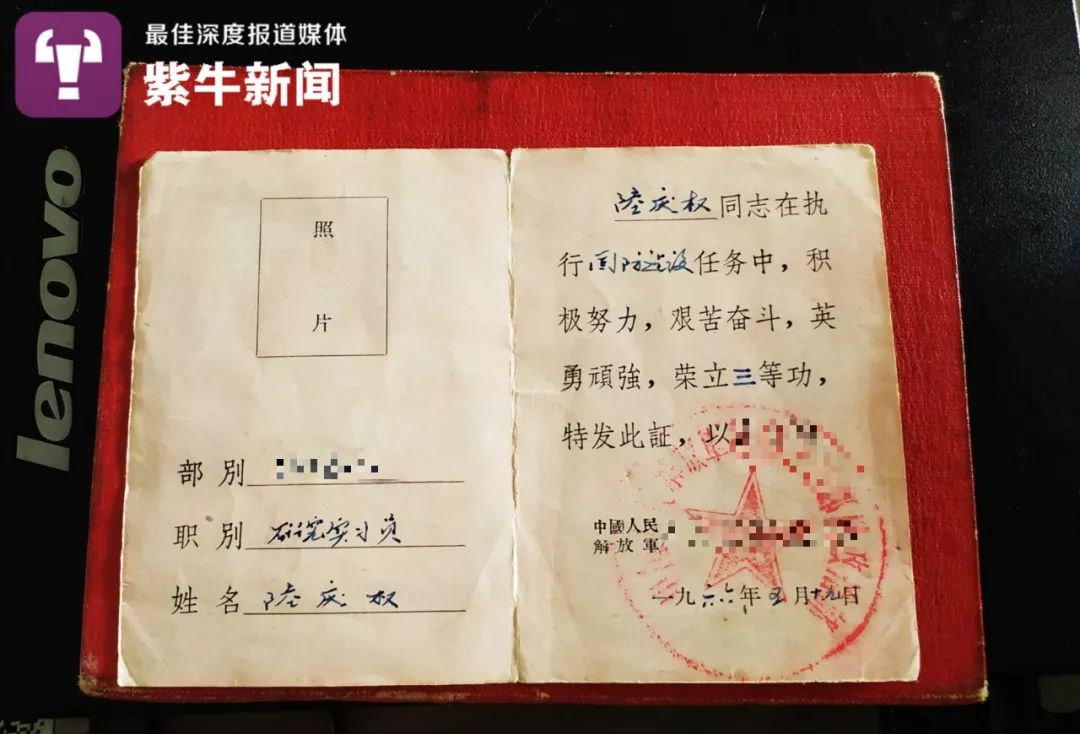 最佳深度报道媒体
紫牛新闻
lenovo
照
片
部別
职別 研究实习员
姓名 陸庆权
陸庆权同志在执
行国防建设任务中，积
极努力，艰苦奋斗，英
勇頑強，荣立三等功，
特发此証，以
中國人民
解放軍
一九六六年五月十九日